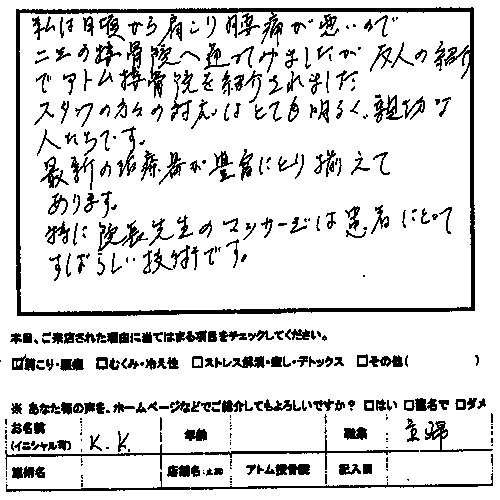 私は日頃から肩こり腰痛が悪いので
二三の接骨院へ通ってみましたが友人の紹介
でアトム接骨院を紹介されました
スタッフの方々の対応はとても明るく、親切な
人たちです。
最新の治療器が豊富にとり揃えて
あります。
特に院長先生のマッサージは患者にとって
すばらしい技術です。
本日、ご来店された理由に当てはまる項目をチェックしてください。
☑肩こり・腰痛 □むくみ・冷え性 □ストレス解消・癒し・デトックス □その他( )
※ あなた様の声を、ホームページなどでご紹介してもよろしいですか? □はい □匿名で □ダメ
お名前
(イニシャル可) K.K 年齢 職業 主婦
店舗名 アトム接骨院 記入日